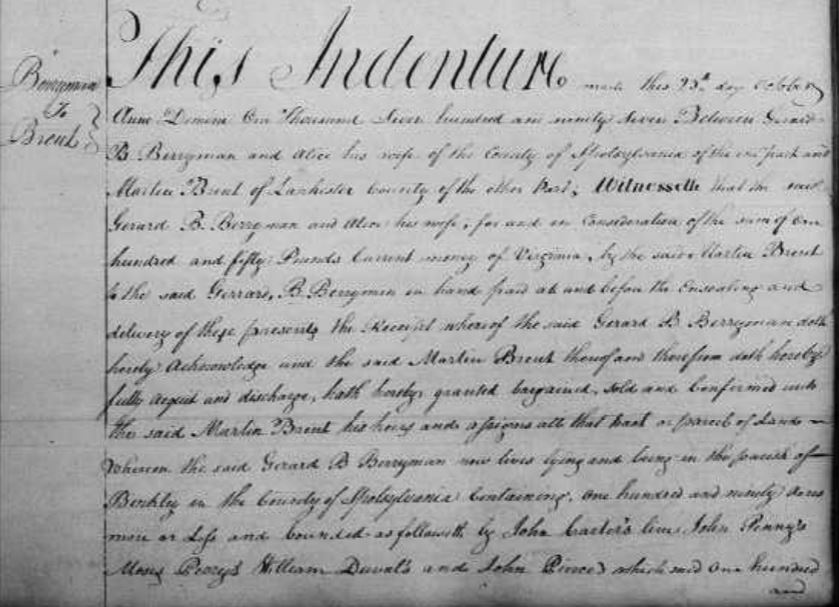 Berryman
To
Brent
This Indenture made this 23d day October
Anno Domini One Thousand Seven hundred and ninety Seven Between Gerard
B. Berryman and Alice his wife of the County of Spotsylvania of the one part and
Martin Brent of Lanchester County of the other Part, Witnesseth that the said
Gerard B. Berryman and Alice his wife, for and in Consideration of the sum of One
hundred and fifty Pounds Current money of Virginia, by the said Martin Brent
to the said Gerrard, B. Berryman in hand paid at and before the Ensealing and
delivery of these presents, the Receipt whereof the said Gerard B Berryman doth
hereby Acknowledge and the said Martin Brent thereof and therefrom doth hereby
fully acquit and discharge, hath hereby granted bargained, Sold and Confirmed unto
the said Martin Brent his heirs and assigns all that tract or parcel of Land
Whereon the said Gerard B Berryman now lives lying and being in the parish of
Berkley in the County of Spotsylvania Containing, One hundred and ninety acres
more or Less and bounded as followeth by John Carter's line John Penny's
Moses Perry's William Duval's and John Pierce's which said One hundred
and